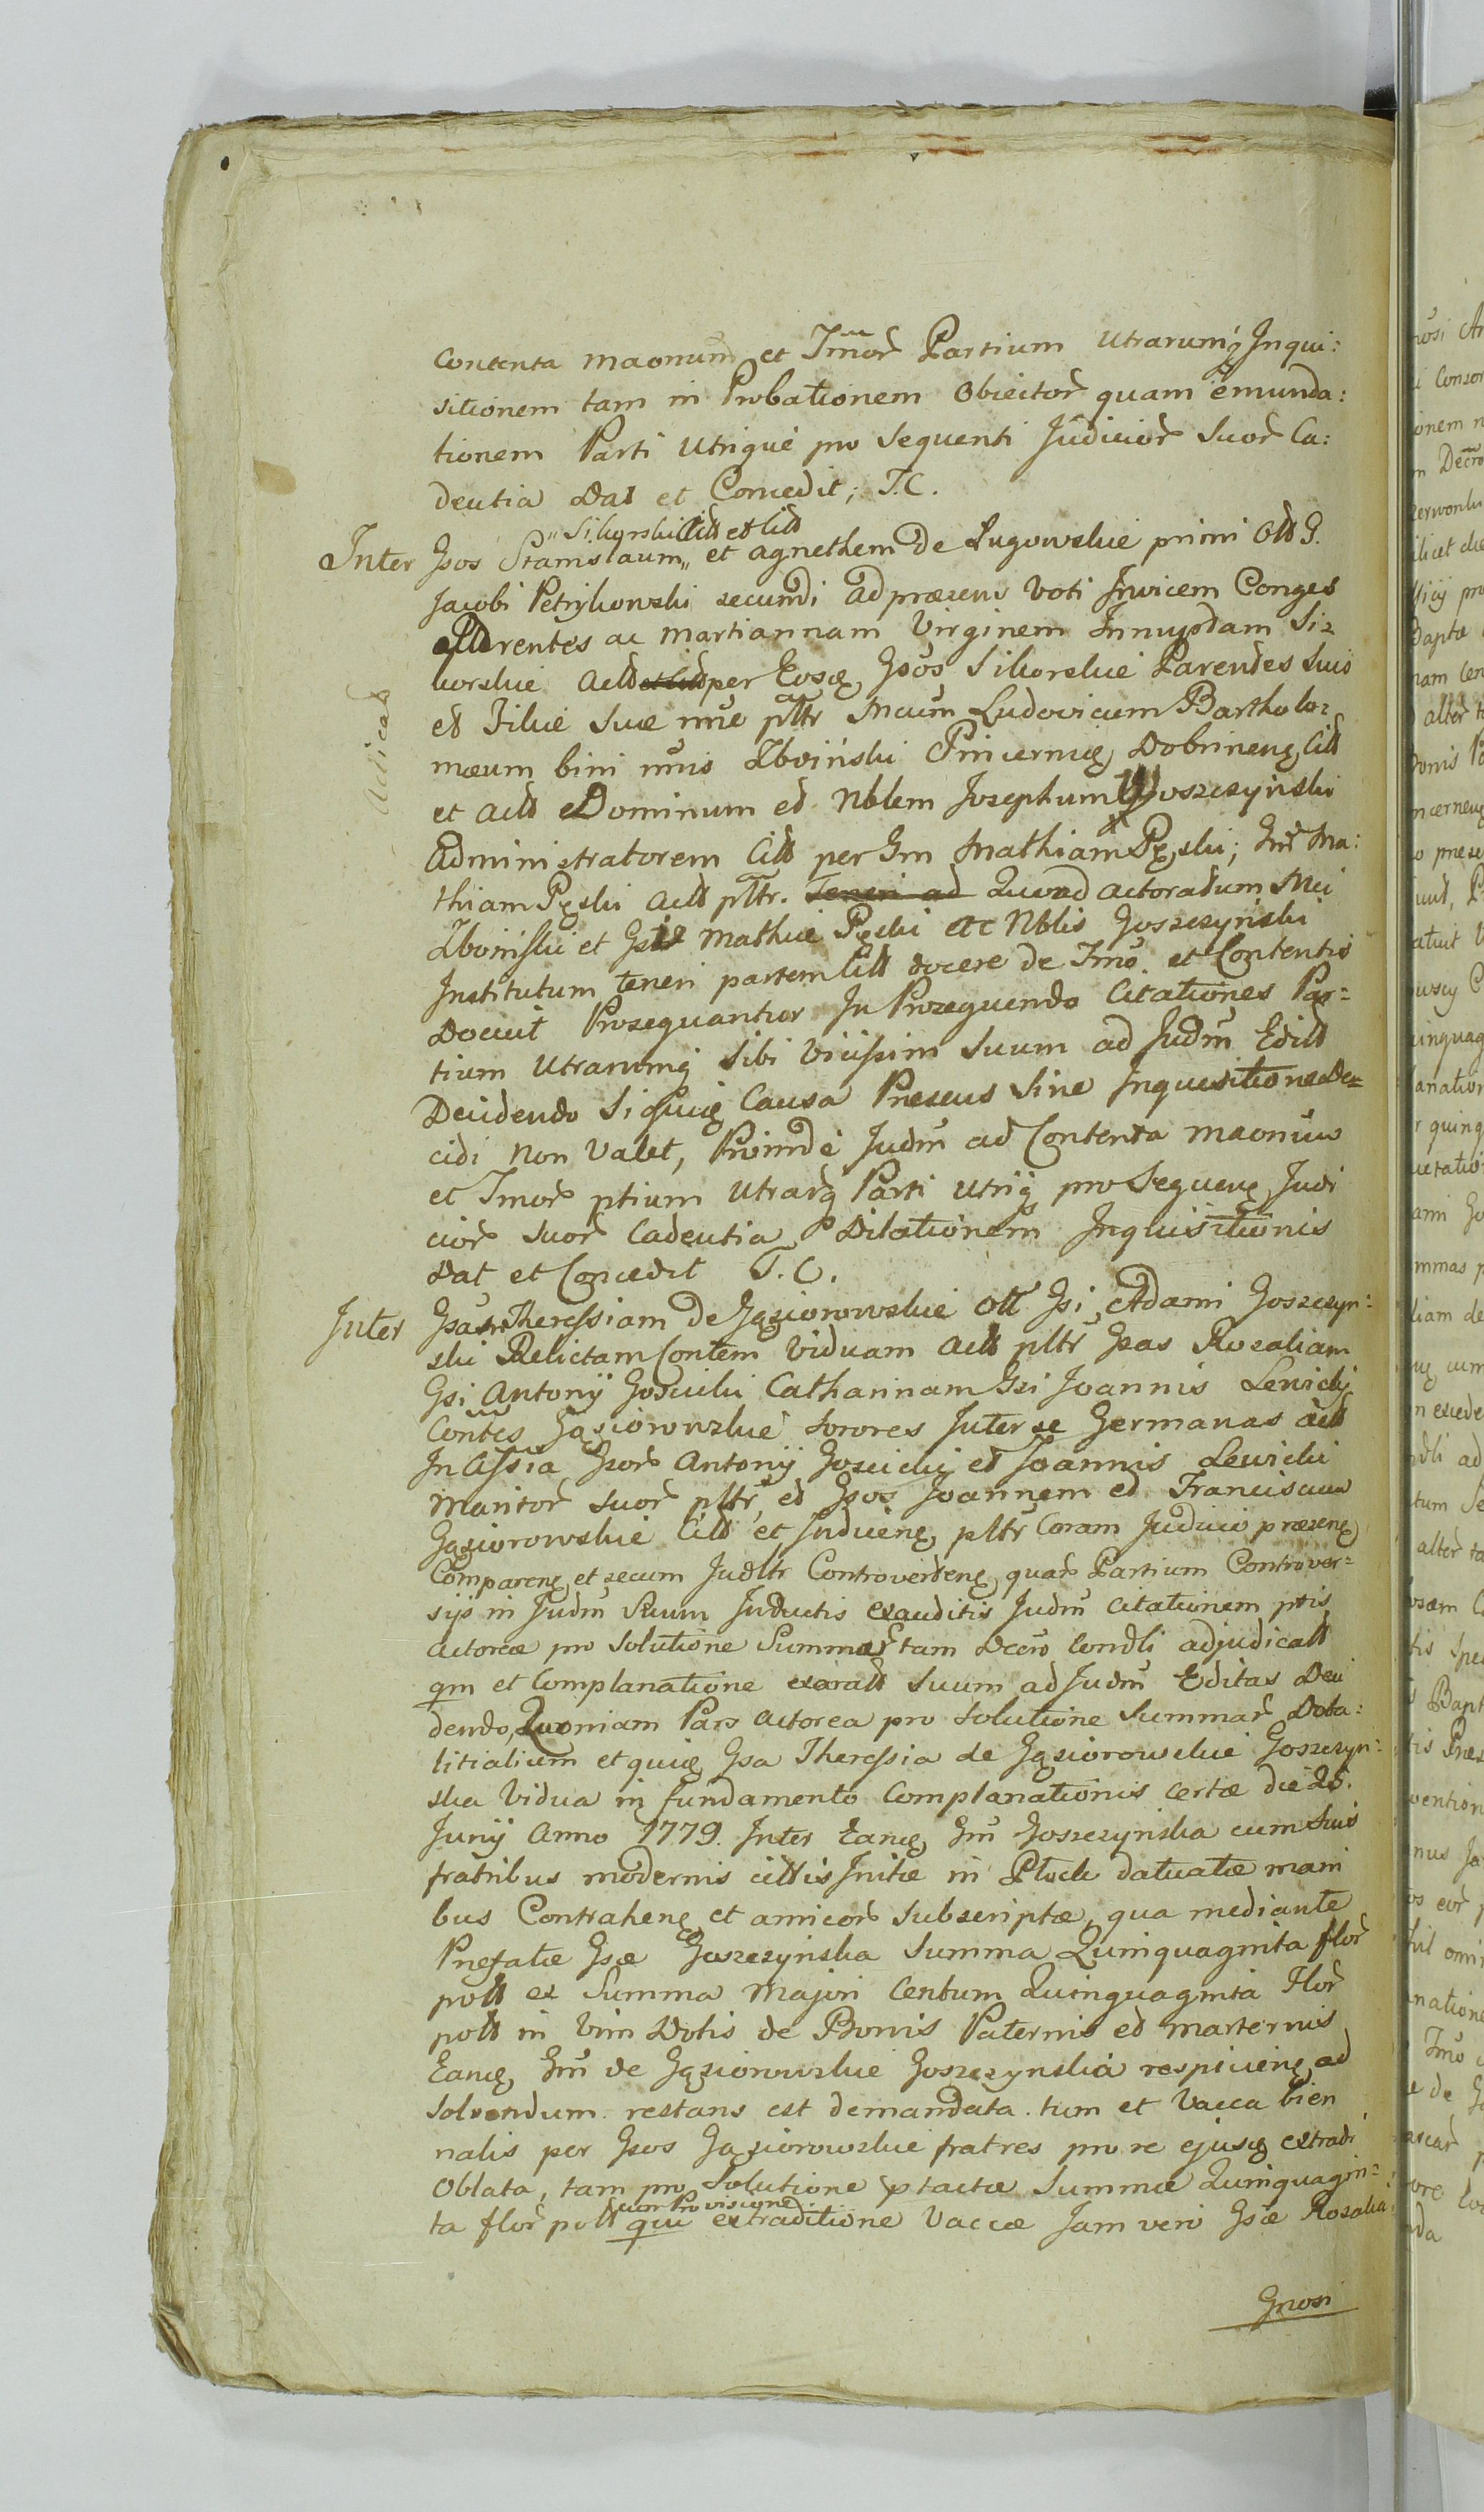 Contenta maonum et Tmor Partium Utrarumq Inqui:
sitionem tam in Probationem Obiector quam emunda:
tionem Parti Utrique pro Sequenti Judicior Suor Ca:
dentia Dat et Concedit; T.C.
„Sikorski Citt et Citt
Inter Gsos Stanislaum „ et agnethem de Lugowskie primi Ott G.
Jacobi Petrykowski secundi ad præsens Voti Invicem Conges
Parentes ac Martiannam Virginem Innuptam Si-
korskie Actt et Citt per Eosq Gsos Sikorskie Parentes Suos
et Filiæ Suæ nne pltr Mcum Ludovicum Bartholo-
mæum bini nnis Zboinski Pincernig Dobrineng Citt
et Actt Dominum et Nblem Josephum Goszczynski
Administratorem Citt per Gm Mathiam Pęski; Gm Ma:
thiam Pęski Actt pltr. Teneri ad Quoad actoratum Mci
Zboinski et Gsi Mathiæ Pęski ac Nblis Goszczynski
Institutum teneri partem Citt docere de Tmo. et Contentis
Docuit Prosequantior In Prosequendo Citationes Par=
tium Utrarumq Sibi Vicissim Suum ad Judm Editt
Decidendo Siquiq Causa Præsens Sine Inquisitione De=
cidi Non Valet, Proinde Judm ad Contenta maonum
et Tmor ptium Utrarq Parti Utriq pro Sequenq Judi
cior Suor Cadentia Dilationem Inquisitionis
Dat et Concedit T.C.
Inter Gsam Theressiam De Gąsiorowskie Ott Gsi Adami Goszczyn:
ski Relictam Contem Viduam Actt pltr Gsas Rosaliam
Gsi Antonij Goscicki Catharinam Gsi Joannis Lewicki
Contes Gąsiorowskie Sorores Inter se Germanas Citt
In Assia Gsor Antonij Goscicki et Joannis Lewicki
Maritor Suor pltr, et Gsos Joannem et Franciscum
Gąsiorowskie Citt et Induceng pltr Coram Judicio præseng
Compareng et secum Judltr Controverteng quar Partium Controver=
sijs in Judm Suum Inductis exauditis Judm Citationem ptis
Actoreæ pro Solutione Summar tam Dcero Condli adjudicatt
qm et Complanatione exaratt Suum ad Judm Editas Deci
dendo, Quoniam Pars Actorea pro Solutione Summar Dota:
litialium et quiq Gsa Theressia de Gąsiorowskie Goszczyn:
ska Vidua in fundamento Complanationis certæ die 25.
Junij Anno 1779. Inter Eanq Gm Goszczynska cum Suis
fratribus modernis cittis Initæ in Płock datuatæ mani
bus Contraheng et amicor Subscriptæ, qua mediante
Præfatæ Gsæ Goszczynska Summa Quinquaginta flor
poll ex Summa Majori Centum Quinquaginta Flor
poll in Vim Dotis de Bonis Paternis et Marternis
Eanq Gm de Gąsiorowskie Goszczynska respicienq ad
Solvendum restans est demandata tum et Vacca bien
nalis per Gsos Gąsiorowskie fratres pro re ejusq extradi
Oblata, tam pro Solutione ptactæ Summæ Quinquagin=
cum Provisione
ta flor poll qui extraditione Vaccæ Jam vero Gsæ Rosalia
Gnosi